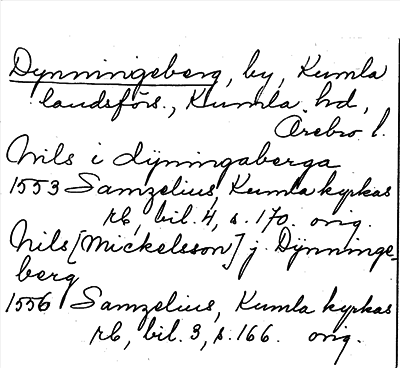 Dynningeberg, by, Kumla
landsförs., Kumla hd,
Örebro l.
Nils i dyningaberga
1553 Samzelius, Kumla kyrkas
rb, bil. 4, s. 170. orig.
Nils [Mickelsson] j Dynninge-
berg
1556 Samzelius, Kumla kyrkas
rb, bil. 3, s. 166. orig.